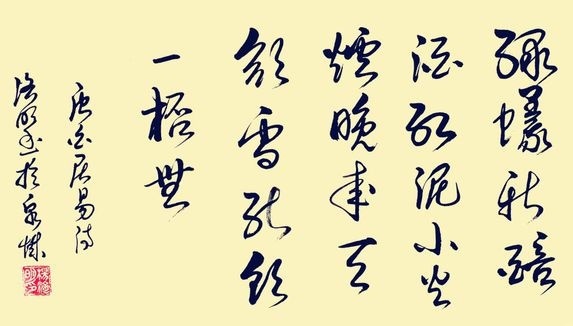 绿蟻新醅
酒红泥小火
爐晚来天
欲雪能飲
一杯無
唐白居易诗
浩明书於泉城